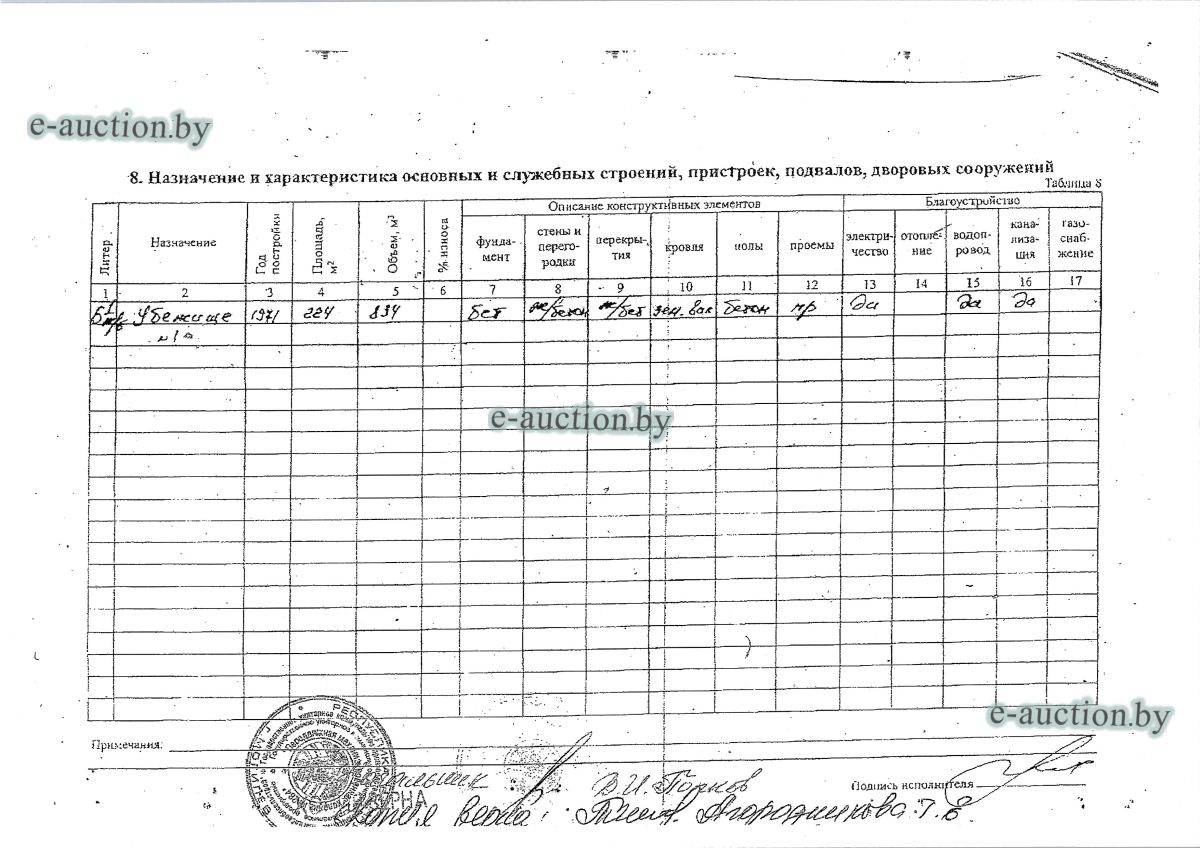 e-auction.by
8. Назначение и характеристика основных и служебных строений, пристроек, подвалов, дворовых сооружений
Таблица 8
Литер
Назначение
Год постройки
Площадь, м²
Объем, м³
% износа
Описание конструктивных элементов
Благоустройство
фунда-
мент
стены и
перего-
родки
перекры-
тия
кровля
полы
проемы
электри-
чество
отопле-
ние
водоп-
ровод
кана-
лиза-
ция
газо-
снаб-
жение
1 2 3 4 5 6 7 8 9 10 11 12 13 14 15 16 17
Убежище 1971 224 834 бет ж/бетон ж/бет зем. вал бетон пр да да да
e-auction.by
e-auction.by
Примечания:
РЕСПУБЛИКА
Подпись исполнителя
Копия верна: